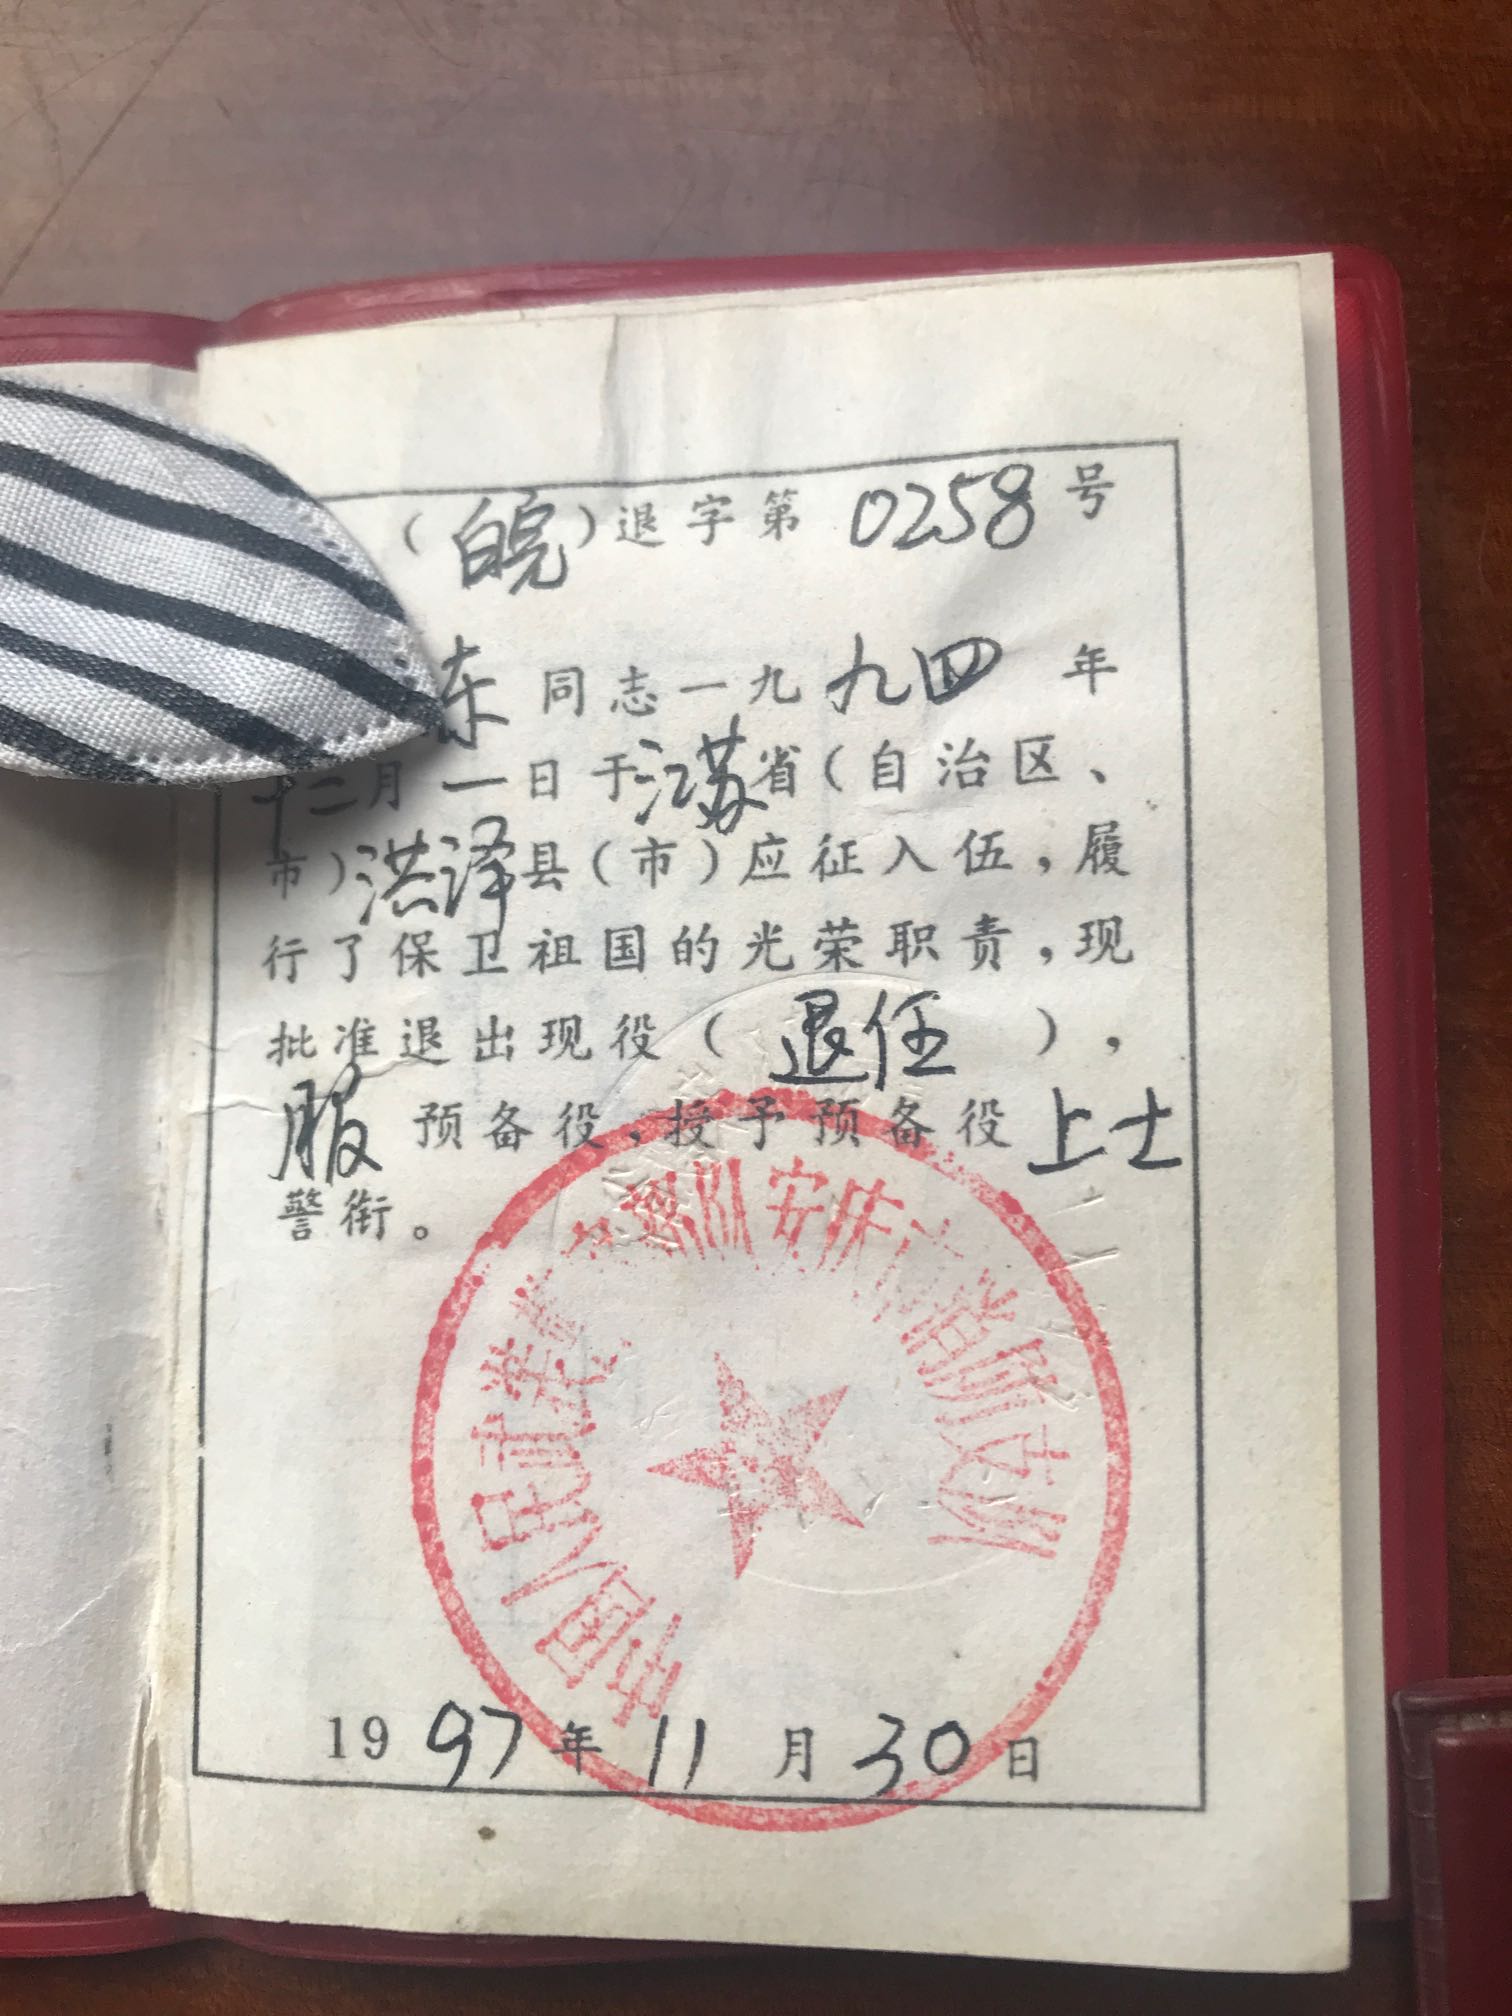 （皖）退字第 0258 号
东 同志一九九四 年
十二月 一日于江苏省（自治区、
市）洪泽县（市）应征入伍，履
行了保卫祖国的光荣职责，现
批准退出现役（ 退伍 ），
服 预备役，授予预备役 上士
警衔。
中国人民武装警察部队安庆市消防支队
1997年 11 月 30 日